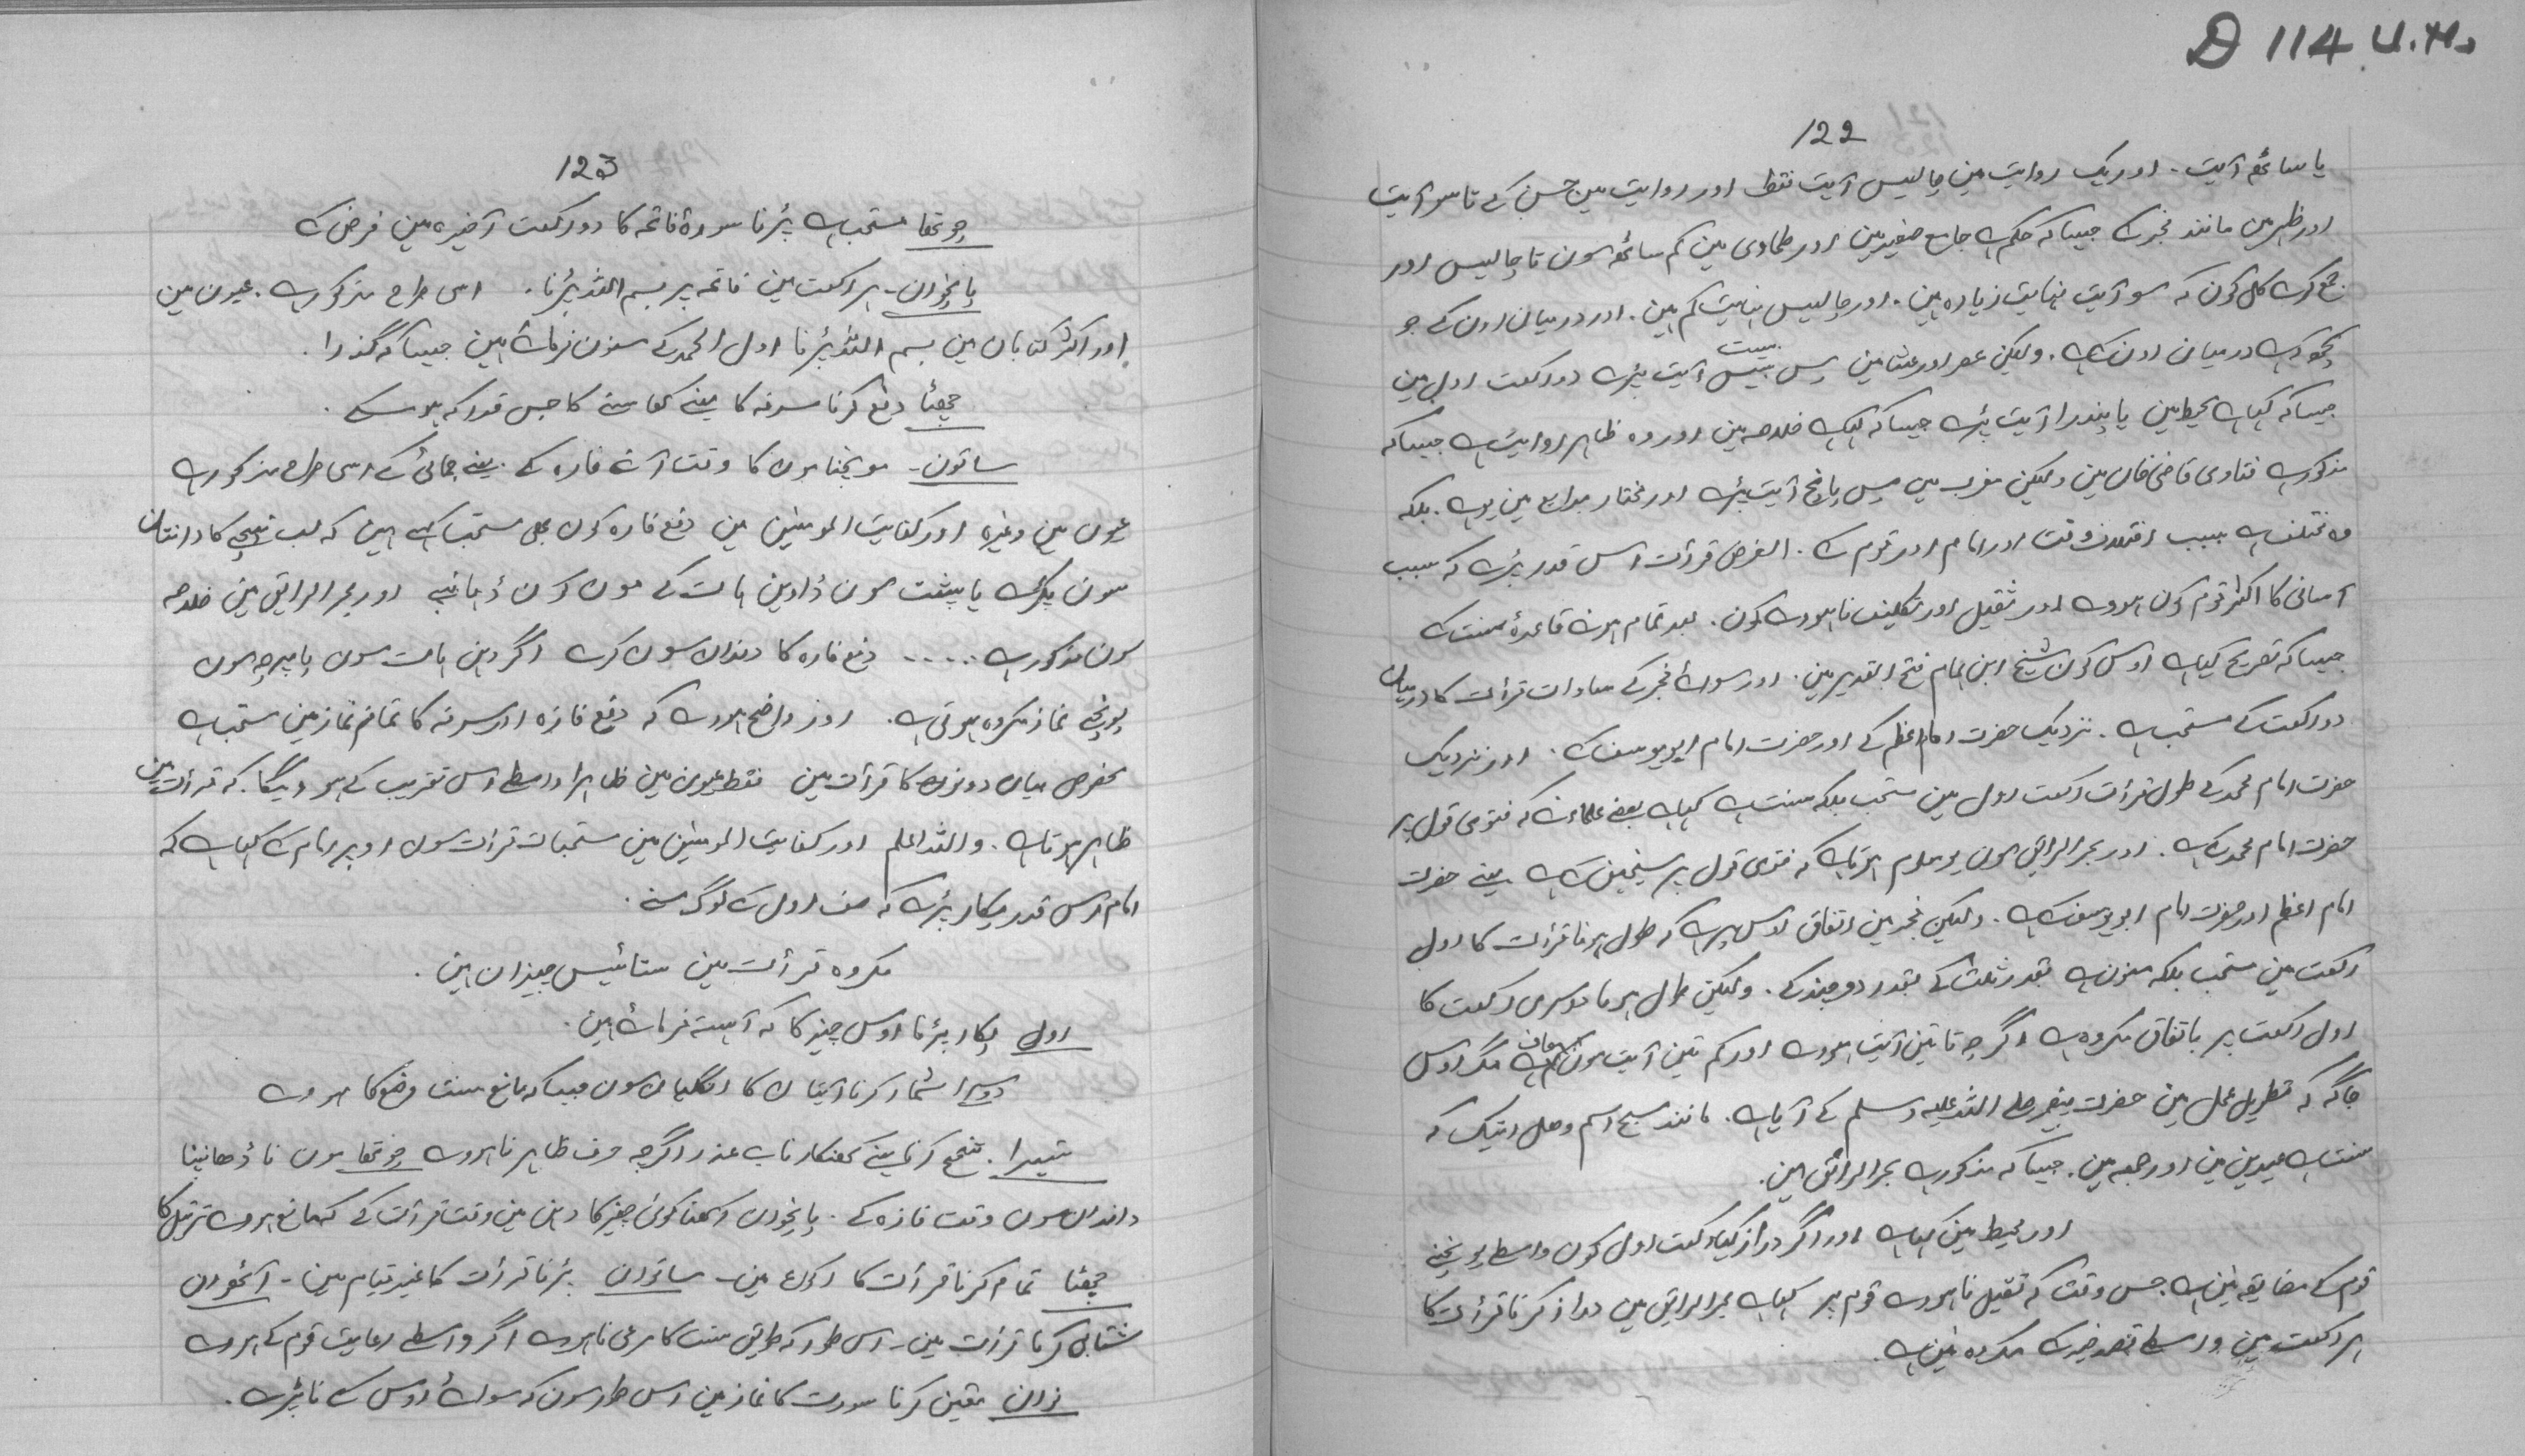 D 114 U.H.
122
یا ساٹھ آیت۔ اور یک روایت مین چالیس آیت فقط اور روایت مین حسن کے تا سو آیت
اور ظہر مین مانند فجر کے جیسا کہ حکم ہے جامع صغیر مین اور طحاوی مین کم ساٹھ سون تا چالیس اور
جمع کرے کل کون کہ سو آیت نہایت زیادہ ہین۔ اور چالیس نہایت کم ہین۔ اور درمیان اون کے جو
کچھ ہے درمیان اون کے ہے۔ ولیکن عصر اور عشا مین پس بیس بیست آیت پڑے دو رکعت اول مین
جیسا کہ کہا ہے محیط مین یا پندرا آیت پڑے جیسا کہ لکھا خلاصہ مین اور وہ ظاہر روایت ہے جیسا کہ
مذکور ہے فتاوی قاضی خان مین ولیکن مغرب مین پس پانچ آیت پڑے اور مختار بدایع مین یو ہے۔ بلکہ
وہ مختلف ہے بسبب اختلاف وقت اور امام اور قوم کے۔ الغرض قرأت اس قدر پڑے کہ سبب
آسانی کا اکثر قوم کون ہووے اور ثقیل اور تکلیف نا ہووے کون۔ بعد تمام ہونے قاعدۂ سنت کے
جیسا کہ تصریح کیا ہے اوس کون شیخ ابن ہمام فتح القدیر مین۔ اور سوائے فجر کے مساوات قرأت کا درمیان
دو رکعت کے مستحب ہے۔ نزدیک حضرت امام اعظم کے اور حضرت امام ابو یوسف کے۔ اور نزدیک
حضرت امام محمد کے طول قرأت رکعت اول مین مستحب بلکہ سنت ہے کہا ہے بعضے علماء نے کہ فتوی قول پر
حضرت امام محمد کے ہے۔ اور بحر الرایق سون یو معلوم ہوتا ہے کہ فتوی قول پر شیخین کے ہے یعنے حضرت
امام اعظم اور حضرت امام ابو یوسف کے ہے۔ ولیکن فجر مین اتفاق اوس پر ہے کہ طول ہونا قرأت کا اول
رکعت مین مستحب بلکہ مسنون ہے بقدر ثلث کے بقدر دو چند کے۔ ولیکن طول ہونا دوسری رکعت کا
اول رکعت پر باتفاق مکروہ ہے اگرچہ تا تین آیت ہووے اور کم تین آیت سون معاف ہے مگر اوس
جاگہ کہ تطویل عمل مین حضرت پیغمبر صلے اللہ علیہ وسلم کے آیا ہے۔ مانند سبح اسم وھل اتیک کہ
سنت ہے عیدین مین اور جمعہ مین۔ جیسا کہ مذکور ہے بحر الرائق مین۔
اور محیط مین کہا ہے اور اگر دراز کیا رکعت اول کون واسطے پونچنے
قوم کے مضایقہ نین ہے جس وقت کہ ثقیل نا ہووے قوم پر کہا ہے بحر الرایق مین دراز کرنا قرأت کا
ہر رکعت مین واسطے قصد خیر کے مکروہ نین ہے۔
123
چوتھا مستحب ہے پڑنا سورۂ فاتحہ کا دو رکعت آخیرہ مین فرض کے
پانچوان۔ ہر رکعت مین فاتحہ پر بسم اللہ پڑنا۔ اسی طرح مذکور ہے۔ عیون مین
اور اکثر کتابان مین بسم اللہ پڑنا اول الحمد کے مسنون فرمائے ہین جیسا کہ گذرا۔
چھٹا دفع کرنا سرفہ کا یعنے کھانسنے کا جس قدر کہ ہو سکے۔
ساتون۔ مونچنا مون کا وقت آنے فازہ کے۔ یعنے جمائی کے اسی طرح مذکور ہے
عیون مین وغیرہ اور کفایت المومنین مین دفع فازہ کون بھی مستحب کہے ہین کہ لب نیچے کا دانتان
سون پکڑے یا پشت سون ڈاوین ہات کے مون کون ڈہانپے اور بحر الرایق مین خلاصہ
سون مذکور ہے ..... دفع فازہ کا دندان سون کرے اگر دہن ہات سون یا پیرچہ سون
پونچے نماز مکروہ ہوتی ہے۔ اور واضح ہووے کہ دفع فازہ اور سرفہ کا تمام نماز مین مستحب ہے
بخصوص بیان دونون کا قرأت مین فقط عیون مین ظاہرا واسطے اس تقریب کے ہو ویگا۔ کہ قرأت مین
ظاہر ہوتا ہے۔ واللہ اعلم اور کفایت المومنین مین مستحبات قرأت سون اوپر امام کے کہا ہے کہ
امام اس قدر پکار پڑے کہ صف اول کے لوگ سنے۔
مکروہ قرأت مین ستائیس چیزان ہین۔
اول پکار پڑنا اوس چیز کا کہ آہستہ فرمائے ہین۔
دوسرا شمار کرنا آیتان کا انگلیان سون جیسا کہ مانع سنت وضع کا ہووے
تیسرا۔ تنحنح کرنا یعنے کھنکارنا بے عذر اگرچہ حرف ظاہر نا ہووے چوتھا مون نا ڈھانپنا
دانتان سون وقت فازہ کے۔ پانچوان رکھنا کوئی چیز کا دہن مین وقت قرأت کے کہ مانع ہووے ترتیل کا
چھٹا تمام کرنا قرأت کا رکوع مین۔ ساتوان پڑنا قرأت کا غیر قیام مین۔ آٹھوان
شتابی کرنا قرأت مین۔ اس طور کہ طریق سنت کا مرعی نا ہووے اگر واسطے رعایت قوم کے ہووے
نوان تعین کرنا سورت کا نماز مین اس طور سون کہ سوائے اوس کے نا پڑے۔